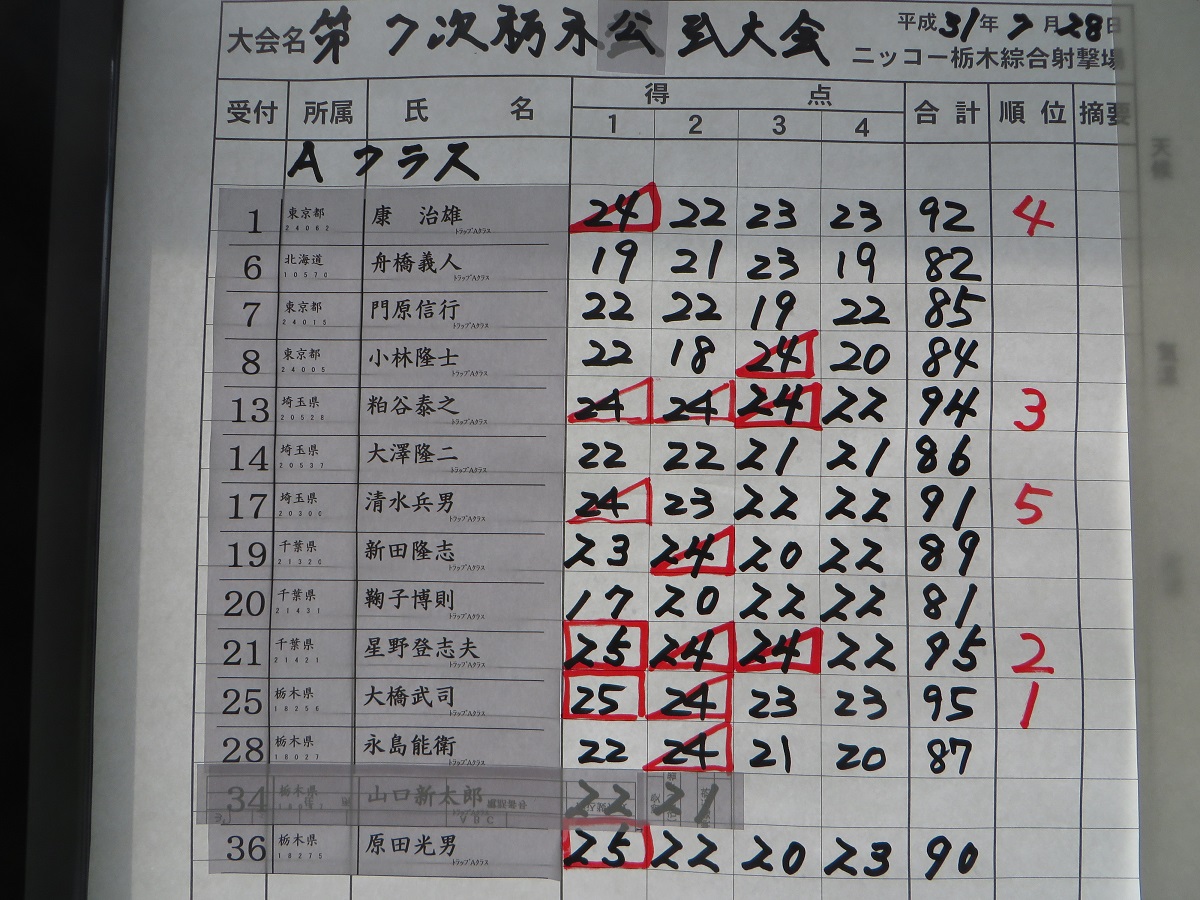 大会名 第7次栃木公式大会 平成31年7月28日
ニッコー栃木綜合射撃場
受付 所属 氏名 得点 合計 順位 摘要
1 2 3 4
Aクラス
1 東京都 24062 康 治雄 トラップAクラス 24 22 23 23 92 4
6 北海道 10570 舟橋義人 トラップAクラス 19 21 23 19 82
7 東京都 24015 門原信行 トラップAクラス 22 22 19 22 85
8 東京都 24005 小林隆士 トラップAクラス 22 18 24 20 84
13 埼玉県 20528 粕谷泰之 トラップAクラス 24 24 24 22 94 3
14 埼玉県 20537 大澤隆二 トラップAクラス 22 22 21 21 86
17 埼玉県 清水兵男 トラップAクラス 24 23 22 22 91 5
19 千葉県 新田隆志 トラップAクラス 23 24 20 22 89
20 千葉県 21431 鞠子博則 トラップAクラス 17 20 22 22 81
21 千葉県 21421 星野登志夫 トラップAクラス 25 24 24 22 95 2
25 栃木県 18256 大橋武司 トラップAクラス 25 24 23 23 95 1
28 栃木県 18027 永島能衛 トラップAクラス 22 24 21 20 87
34 栃木県 山口新太郎 22 21
36 栃木県 18275 原田光男 トラップAクラス 25 22 20 23 90